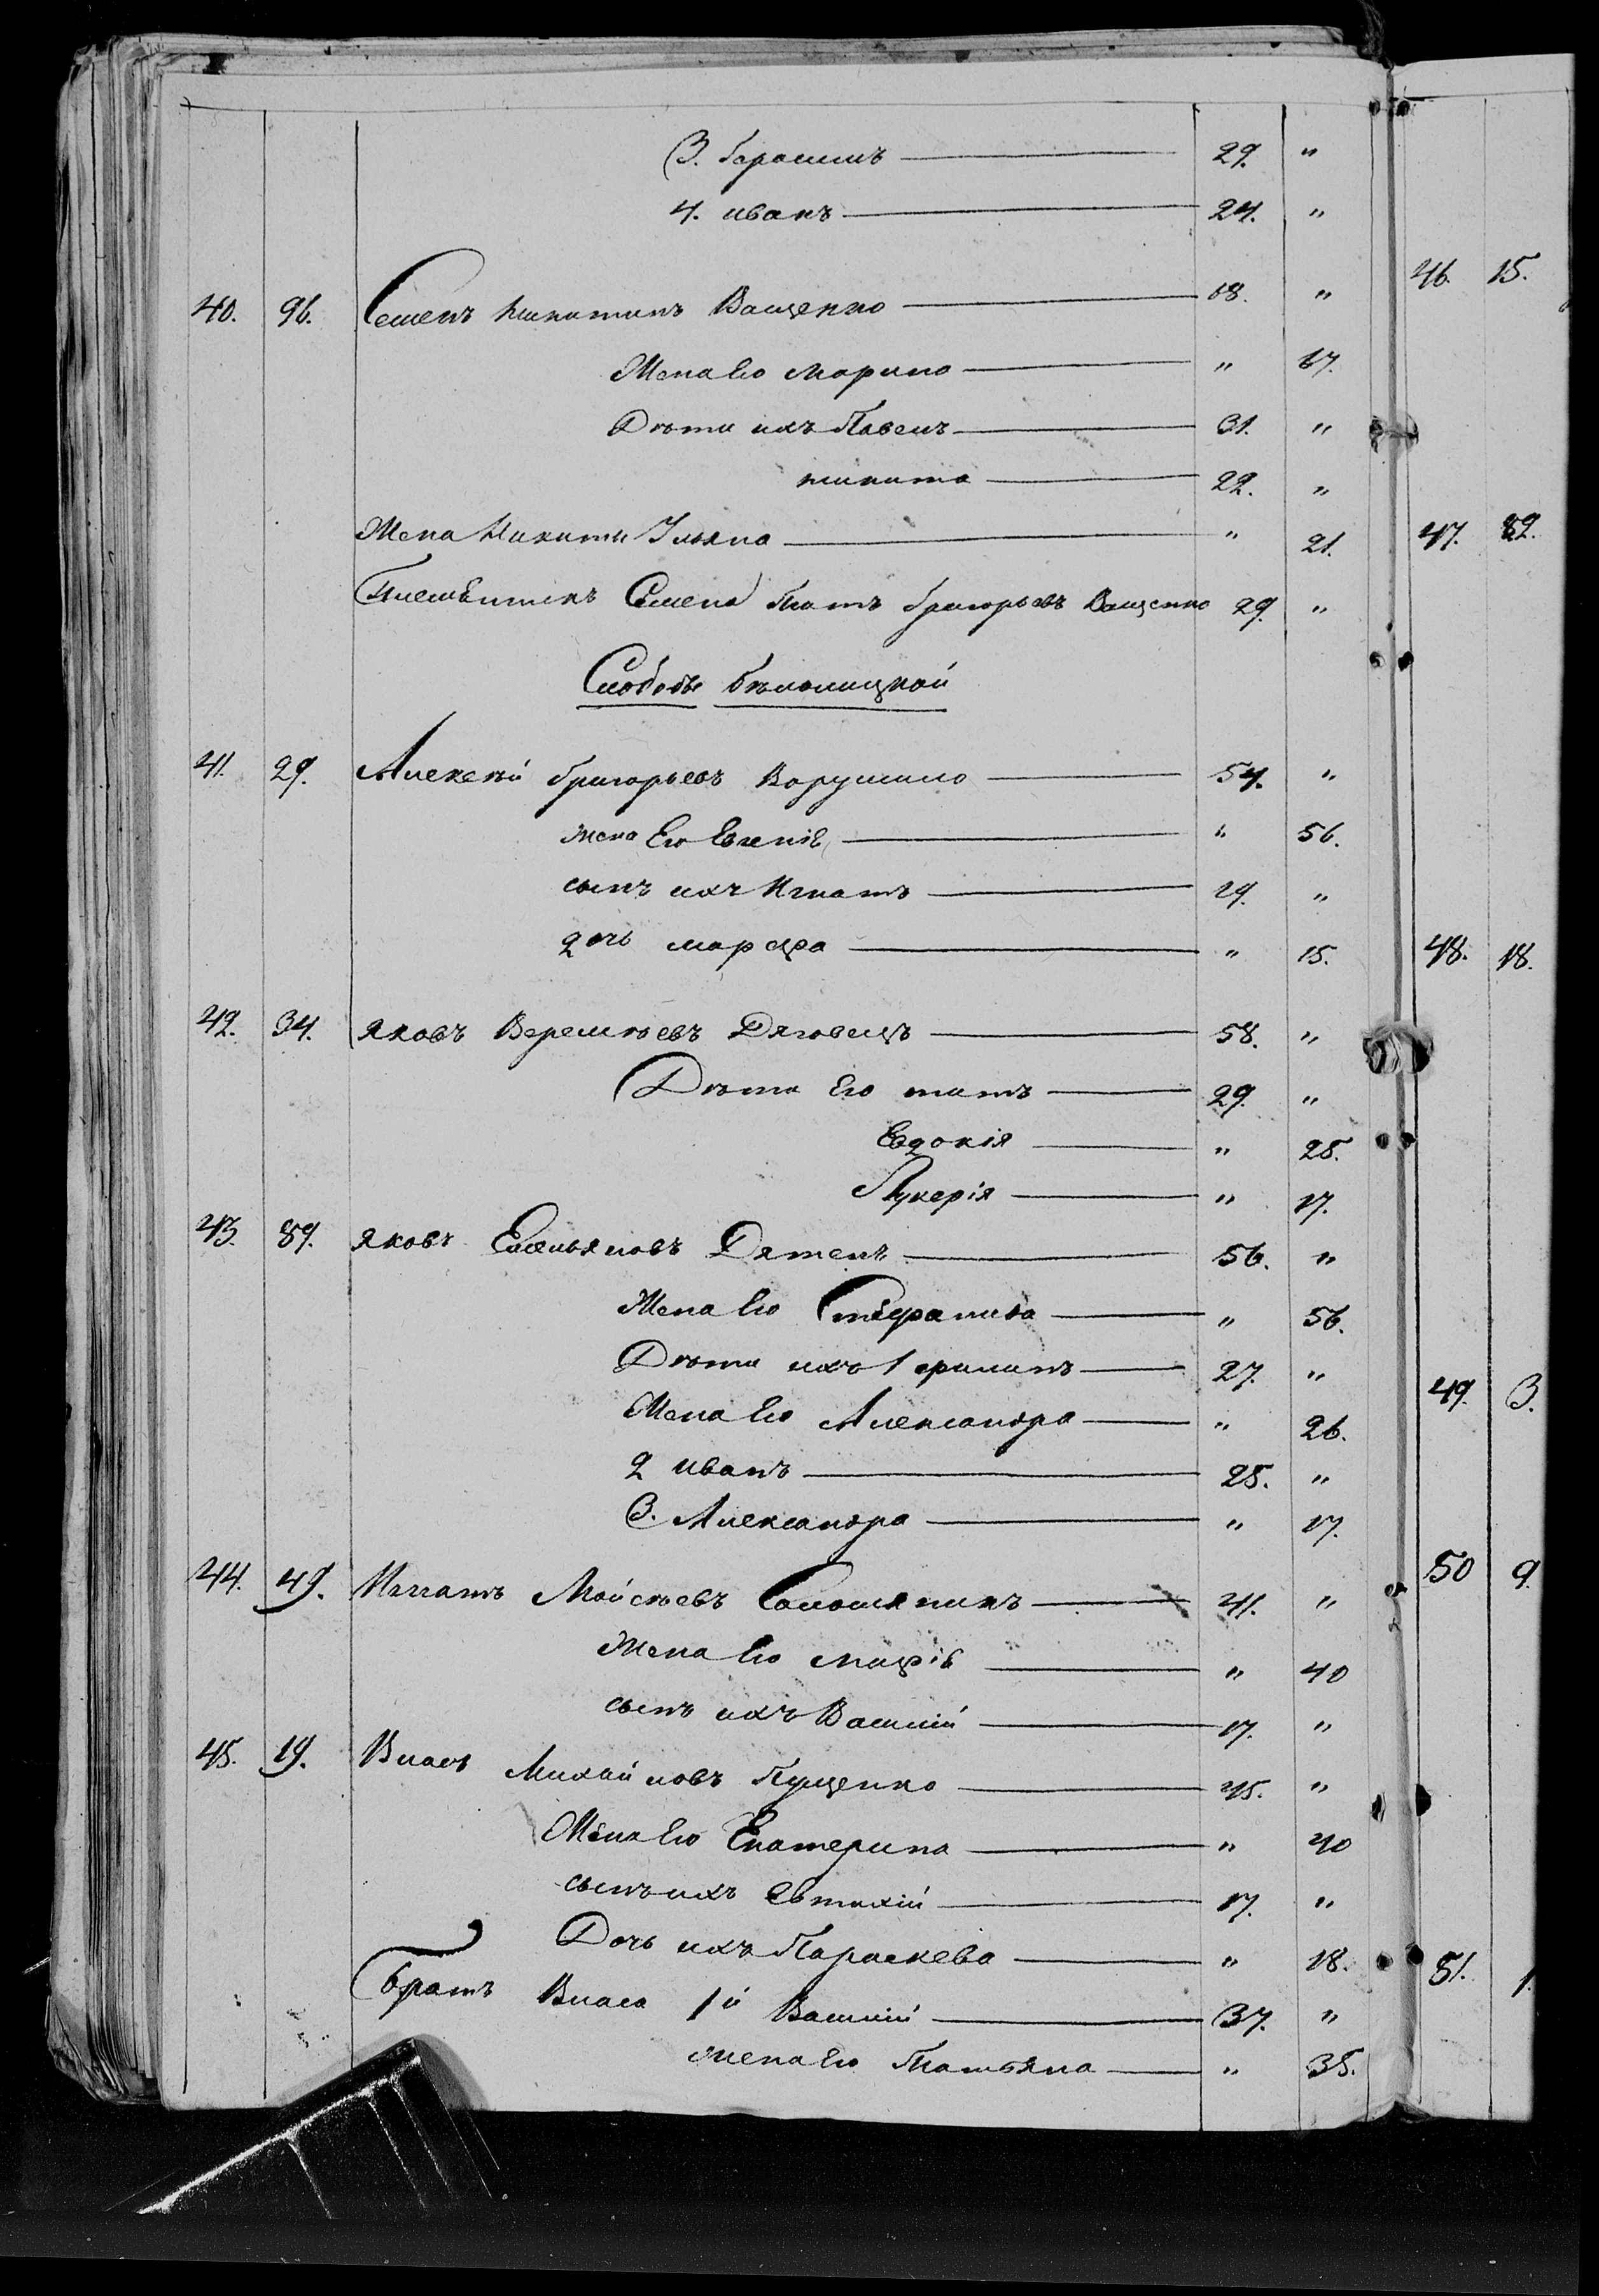 3. Гарасимъ — 29. "
4. иванъ — 24. "
40. 96. Семенъ никитинъ Ващенко — 68. "
Жена Его Марина — " 67.
Дѣти ихъ Павелъ — 31. "
никита — 22. "
Жена Никиты Ульяна — " 21.
Племѣнникъ Семена Игнатъ Григорьевъ Ващенко 29. "
Слободы Бѣлолицкой
41. 29. Алексѣй Григорьевъ Ворушило — 54. "
жена Его Евгенія — " 56.
сынъ ихъ Игнатъ — 29. "
дочь марфа — " 15.
42. 34. Яковъ Веремѣевъ Дяговецъ — 58. "
Дѣти Его — 29. "
Евдокія — " 28.
Лукерія — " 17.
43. 89. Яковъ Емельяновъ Дятелъ — 56. "
Жена Его Стефанида — " 56.
Дѣти ихъ 1 филипъ — 27. "
Жена Его Александра — " 26.
2 иванъ — 25. "
3. Александра — " 17.
44. 49. Игнатъ Мойсѣевъ Соломяникъ — 41. "
Жена Его — " 40
сынъ ихъ Василій — 17. "
45. 19. Власъ Михайловъ Куценко — 45. "
Жена Его Екатерина — " 40
сынъ ихъ Евтихій — 17. "
Дочь ихъ Параскева — " 18.
Братъ Власа 1й Василій — 37. "
жена Его Татьяна — " 35.
46. 15.
47. 82.
48. 18.
49. 3.
50 9.
51. 1.